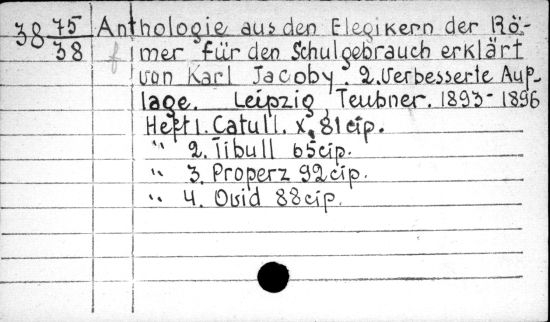 38 75/38 Anthologie aus den Elegikern der Rö-
f mer für den Schulgebrauch erklärt
von Karl Jacoby. 2. Verbesserte Auf-
lage. Leipzig, Teubner. 1893-1896
Heft 1. Catull. X, 81 cip.
" 2. Tibull 65 cip.
" 3. Properz 92 cip.
" 4. Ovid 88 cip.